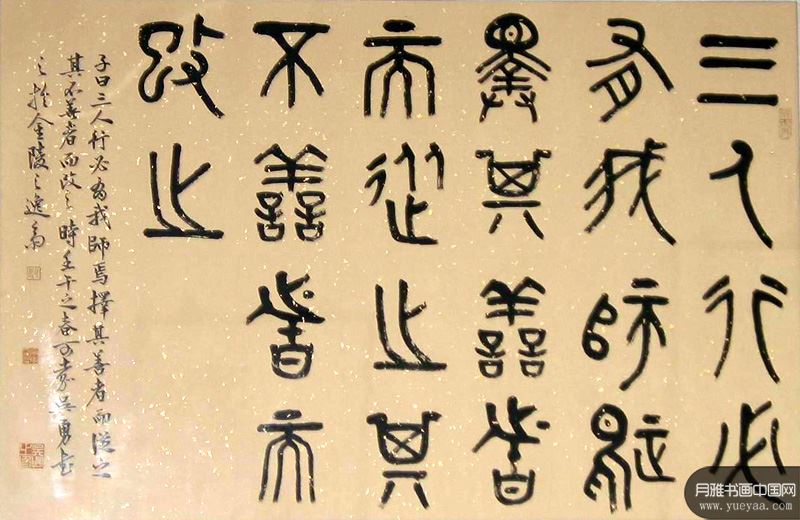 三人行必
有我師焉
擇其善者
而從之其
不善者而
改之
子曰三人行必有我師焉擇其善者而從之
其不善者而改之時壬午之春可吴勇書
之於金陵之逸斋
月雅书画中国网
www.yueyaa.com